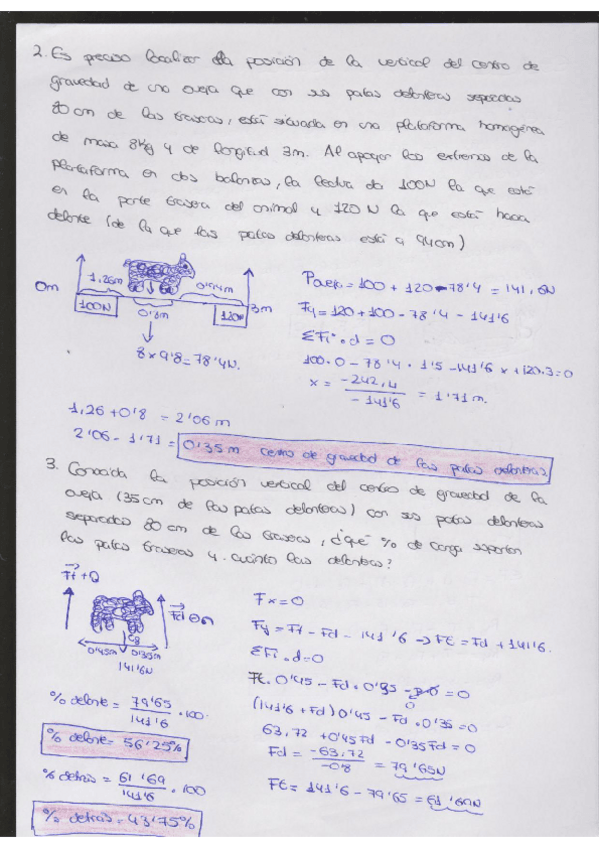 2. Es preciso localizar la posición de la vertical del centro de
gravedad de una oveja que con sus patas delanteras separadas
80 cm de las traseras, está situada en una plataforma homogénea
de masa 8Kg y de longitud 3m. Al apoyar los extremos de la
plataforma en dos balanzas, la lectura da 100N la que está
en la parte trasera del animal y 120 N la que está hacia
delante (de la que las patas delanteras está a 94cm)
0m
1,26m
0'94m
3m
100N
0'8m
120N
8 x 9'8 = 78'4N.
Poveja = 100 + 120 - 78'4 = 141,6N
Fy = 120 + 100 - 78'4 - 141'6
ΣFi · d = 0
100·0 - 78'4 · 1'5 - 141'6 x + 120·3 = 0
x = -242,4 / -141'6 = 1'71 m.
1,26 + 0'8 = 2'06 m
2'06 - 1'71 = 0'35 m centro de gravedad de las patas delanteras
3. Conocida la posición vertical del centro de gravedad de la
oveja (35 cm de las patas delanteras) con sus patas delanteras
separadas 80 cm de las traseras, ¿qué % de carga soportan
las patas traseras y cuánto las delanteras?
Ft + Q
Fd
Cg
0'45m 0'35m
141'6N
Fx = 0
Fy = Ft - Fd - 141'6 → Ft = Fd + 141'6.
ΣFi · d = 0
Ft · 0'45 - Fd · 0'35 - P·0 = 0
0
(141'6 + Fd) 0'45 - Fd · 0'35 = 0
63,72 + 0'45Fd - 0'35Fd = 0
Fd = -63,72 / -0'8 = 79'65N
Ft = 141'6 - 79'65 = 61'69N
% delante = 79'65 / 141'6 · 100
% delante = 56'25%
% detrás = 61'69 / 141'6 · 100
% detrás = 43'75%